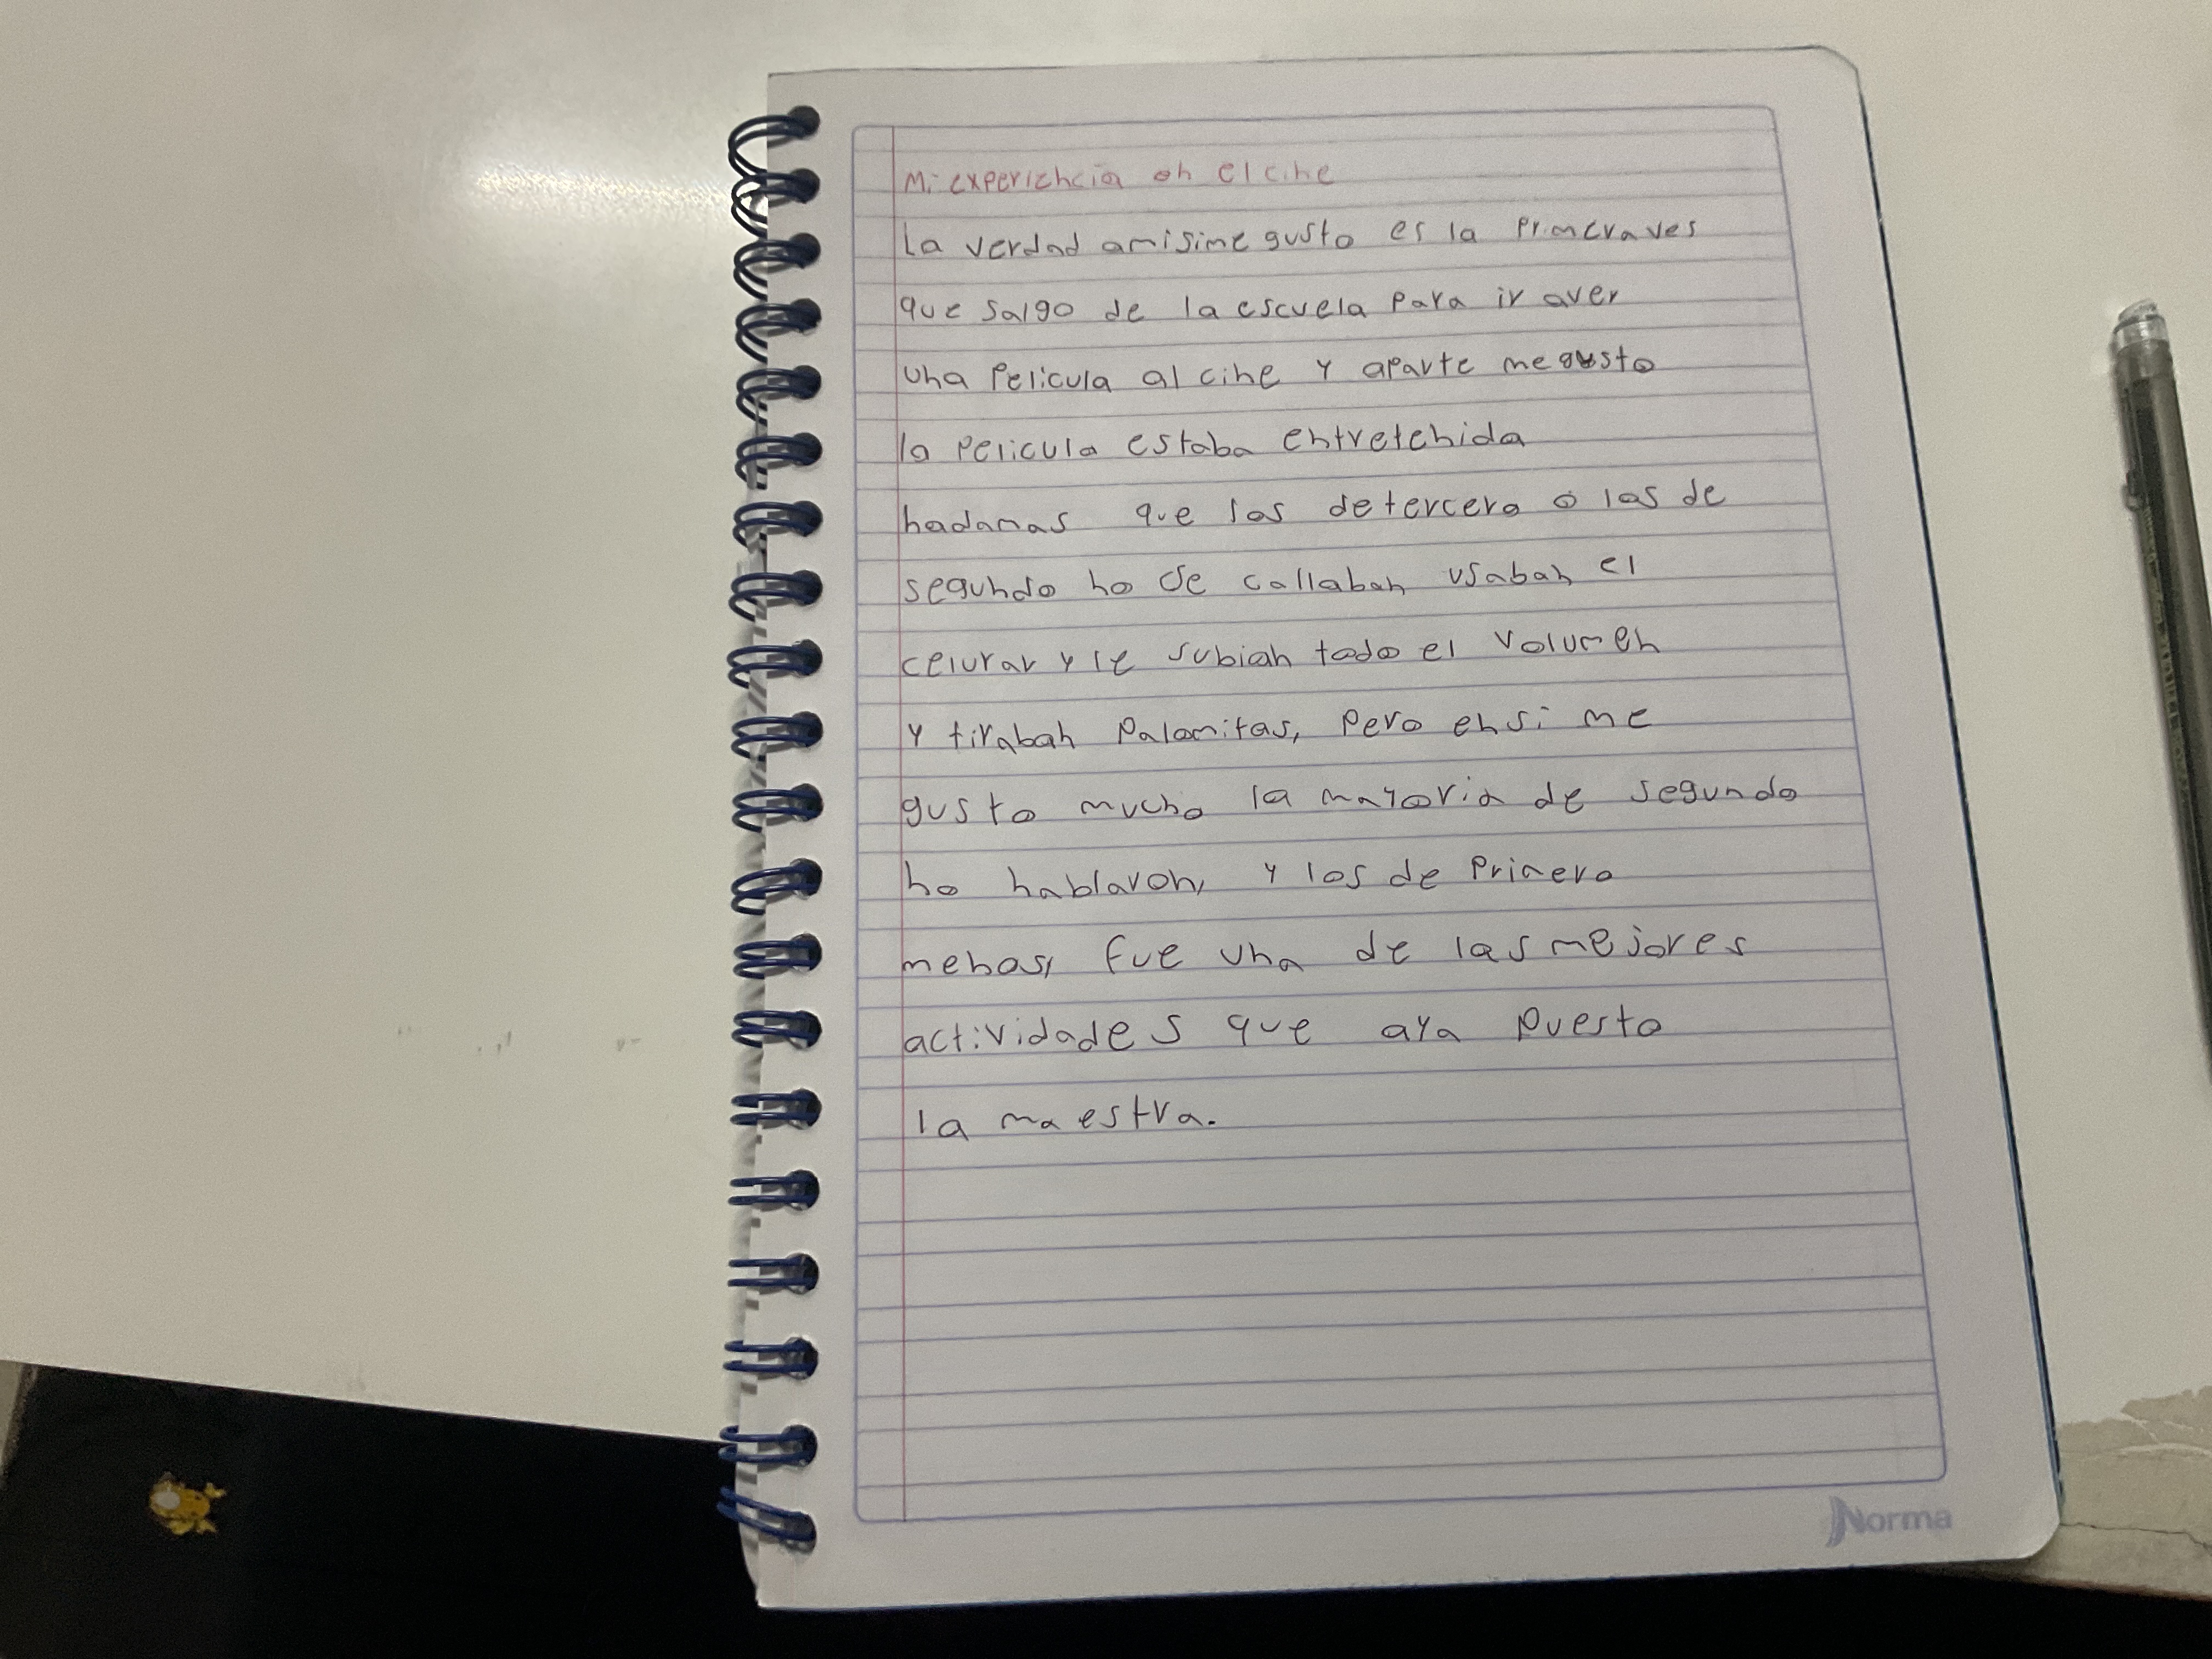 Mi experiencia en el cine
La verdad amisime gusto es la primeraves
que salgo de la escuela para ir aver
una pelicula al cine y aparte megusto
la pelicula estaba entretenida
nadamas que los detercero o los de
segundo no se callaban usaban el
celurar y le subian todo el volumen
y tiraban palomitas, pero ensi me
gusto mucho la mayoria de segundo
no hablaron, y los de primero
menos, fue una de las mejores
actividades que aya puesto
la maestra.
Norma